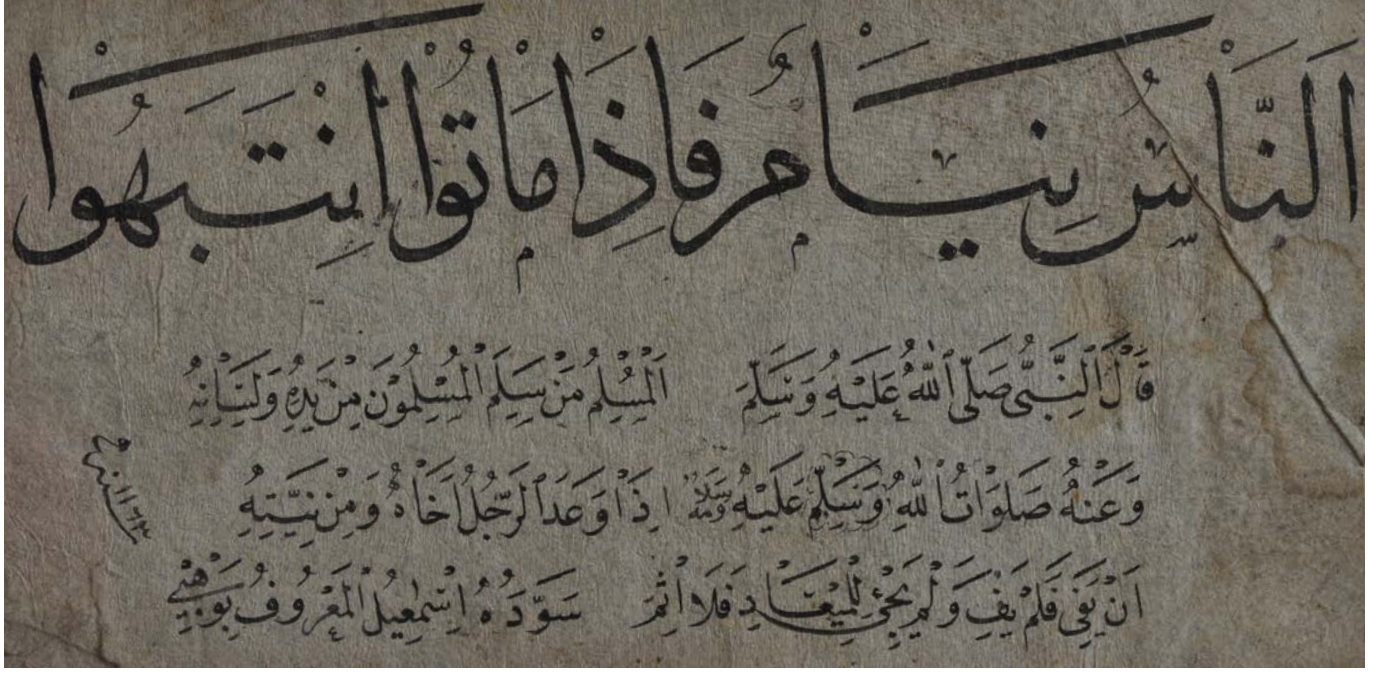 اَلنَّاسُ نِيَامٌ فَاِذَا مَاتُوْا اِنْتَبَهُوْا
قَالَ النَّبِيُّ صَلَّى اللّٰهُ عَلَيْهِ وَسَلَّمَ اَلْمُسْلِمُ مَنْ سَلِمَ الْمُسْلِمُوْنَ مِنْ يَدِهِ وَلِسَانِهِ
وَعَنْهُ صَلَوَاتُ اللّٰهِ وَسَلَّمَ عَلَيْهِ وَسَلَامُهُ اِذَا وَعَدَ الرَّجُلُ اَخَاهُ وَمِنْ نِيَّتِهِ
اَنْ يَفِيَ فَلَمْ يَفِ وَلَمْ يَجِئْ لِلْمِيْعَادِ فَلَا اِثْمَ سَوَّدَهُ اِسْمٰعِيْلُ الْمَعْرُوْفُ بِوَهْبِيْ
سنه ١١٦٣